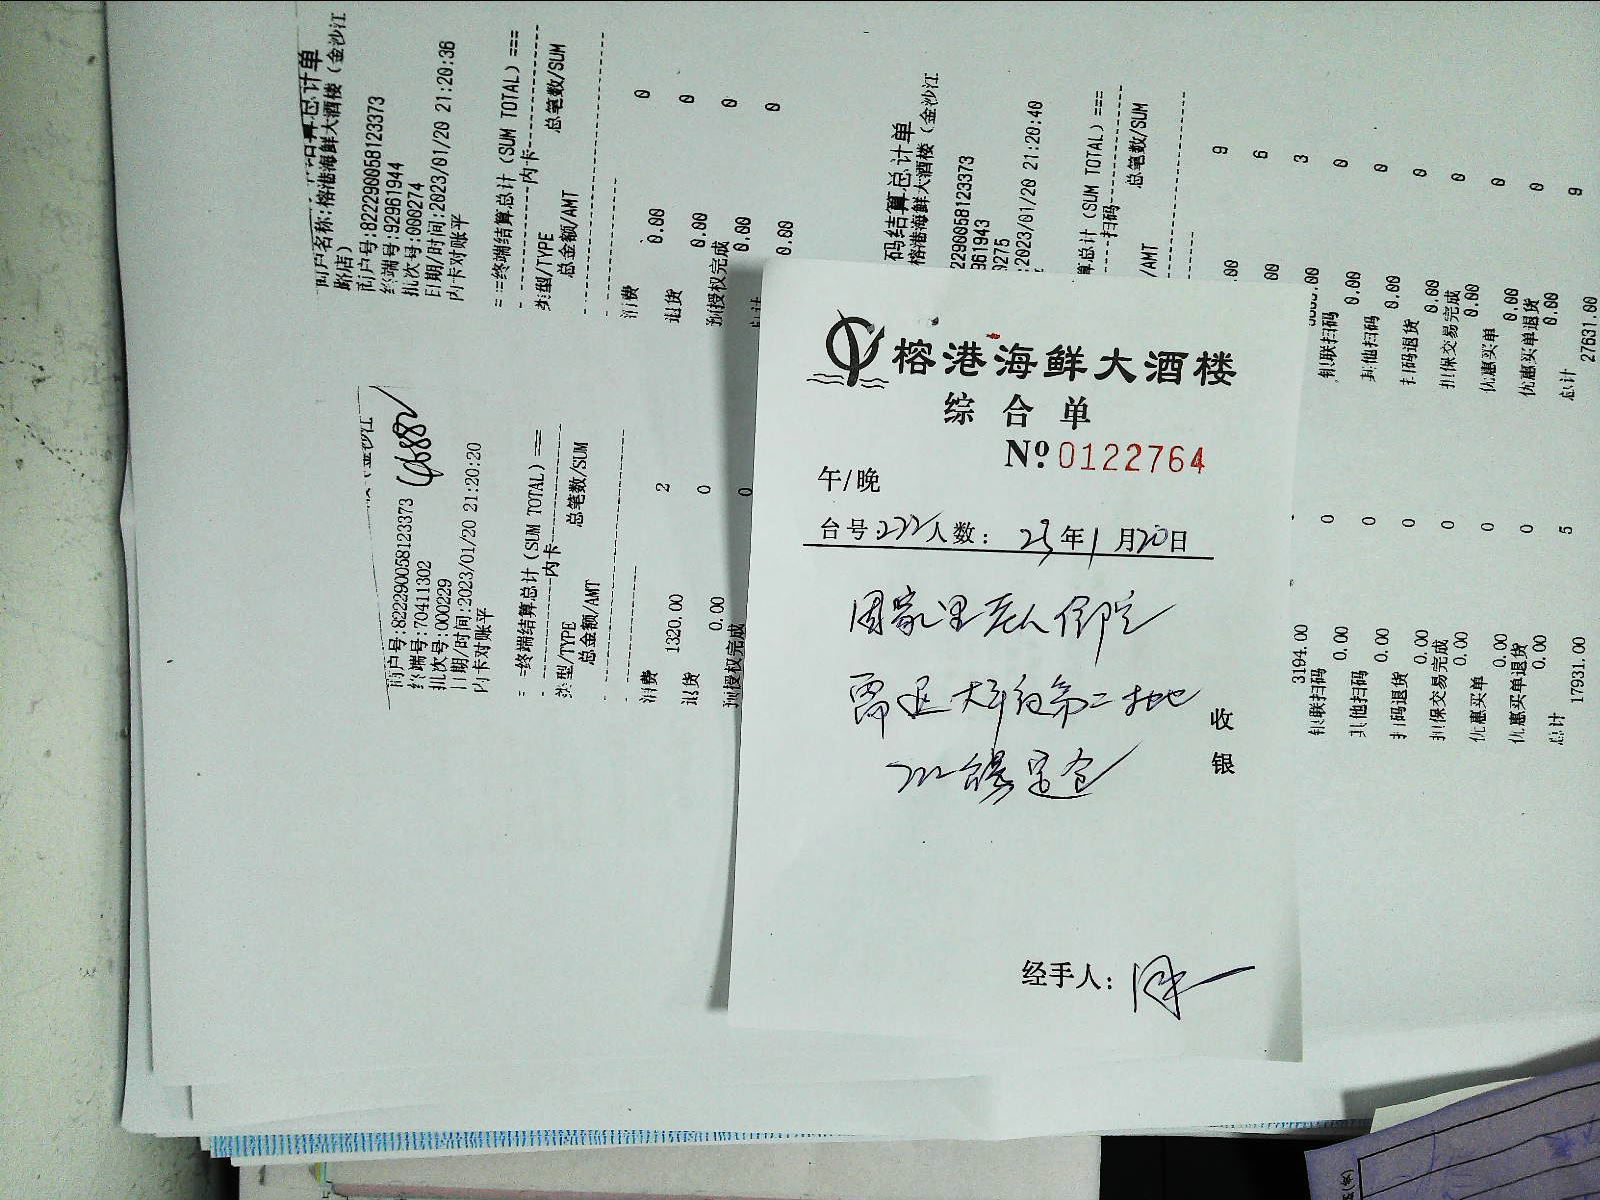 结算总计单
商户名称:榕港海鲜大酒楼（金沙江
路店）
商户号:822290058123373
终端号:92961944
批次号:000274
日期/时间:2023/01/20 21:20:36
内卡对账平
==终端结算总计(SUM TOTAL)===
内卡
类型/TYPE 总笔数/SUM
总金额/AMT
消费 0
0.00
退货 0
0.00
预授权完成 0
0.00
总计 0
0.00
码结算总计单
榕港海鲜大酒楼（金沙江
22290058123373
961943
0275
:2023/01/20 21:20:40
算总计(SUM TOTAL)===
扫码
总笔数/SUM
/AMT
9
.00
6
.00
3
.00
银联扫码 0
0.00
其他扫码 0
0.00
扫码退货 0
0.00
担保交易完成 0
0.00
优惠买单 0
0.00
优惠买单退货 0
0.00
总计 9
27631.00
商户号:822290058123373
终端号:70411302
批次号:000229
日期/时间:2023/01/20 21:20:20
内卡对账平
==终端结算总计(SUM TOTAL)===
内卡
类型/TYPE 总笔数/SUM
总金额/AMT
消费 2
1320.00
退货 0
0.00
预授权完成 0
榕港海鲜大酒楼
综合单
№ 0122764
午/晚
台号:222 人数: 23年1月20日
因家里老人住院
需退大年初第二批
222台 定金
收银
经手人:
3194.00
银联扫码 0
0.00
其他扫码 0
0.00
扫码退货 0
0.00
担保交易完成 0
0.00
优惠买单 0
0.00
优惠买单退货 0
0.00
总计 5
17931.00